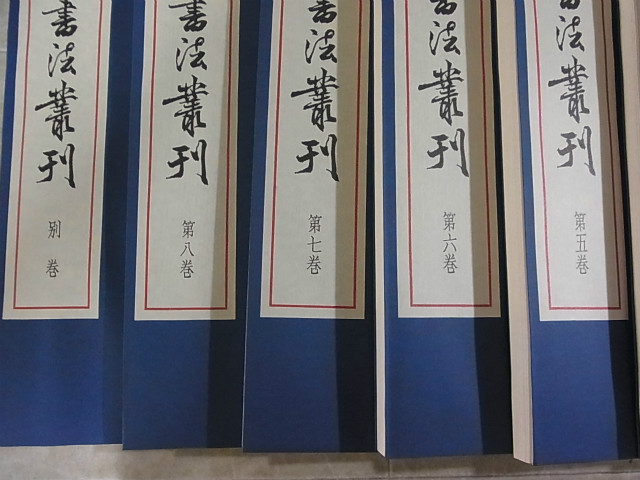 書法叢刊
第五巻
書法叢刊
第六巻
書法叢刊
第七巻
書法叢刊
第八巻
書法叢刊
別巻